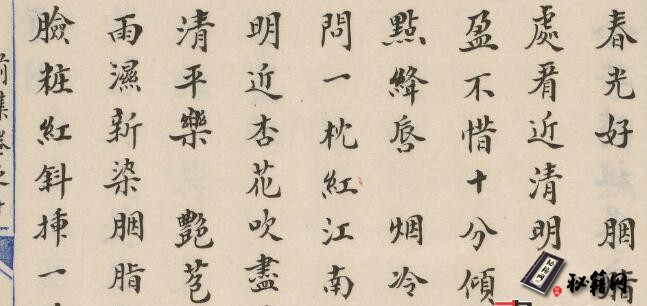 春光好 胭脂
處看近清明
盈不惜十分傾
點絳唇 烟冷
問一枕紅江南
明近杏花吹盡
清平樂 艷苞
雨濕新染胭脂
臉粧紅斜揷一
前集卷之十
秘籍网